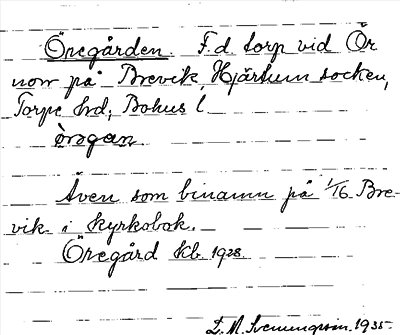 Öregården. F.d. torp vid Ör
norr på Brevik, Hjärtum socken,
Torpe hd, Bohus l.
òrəgan
Även som binamn på 1/16 Bre-
vik i kyrkobok.
Öregård Kb. 1928.
D. M. Svenungsson. 1935.